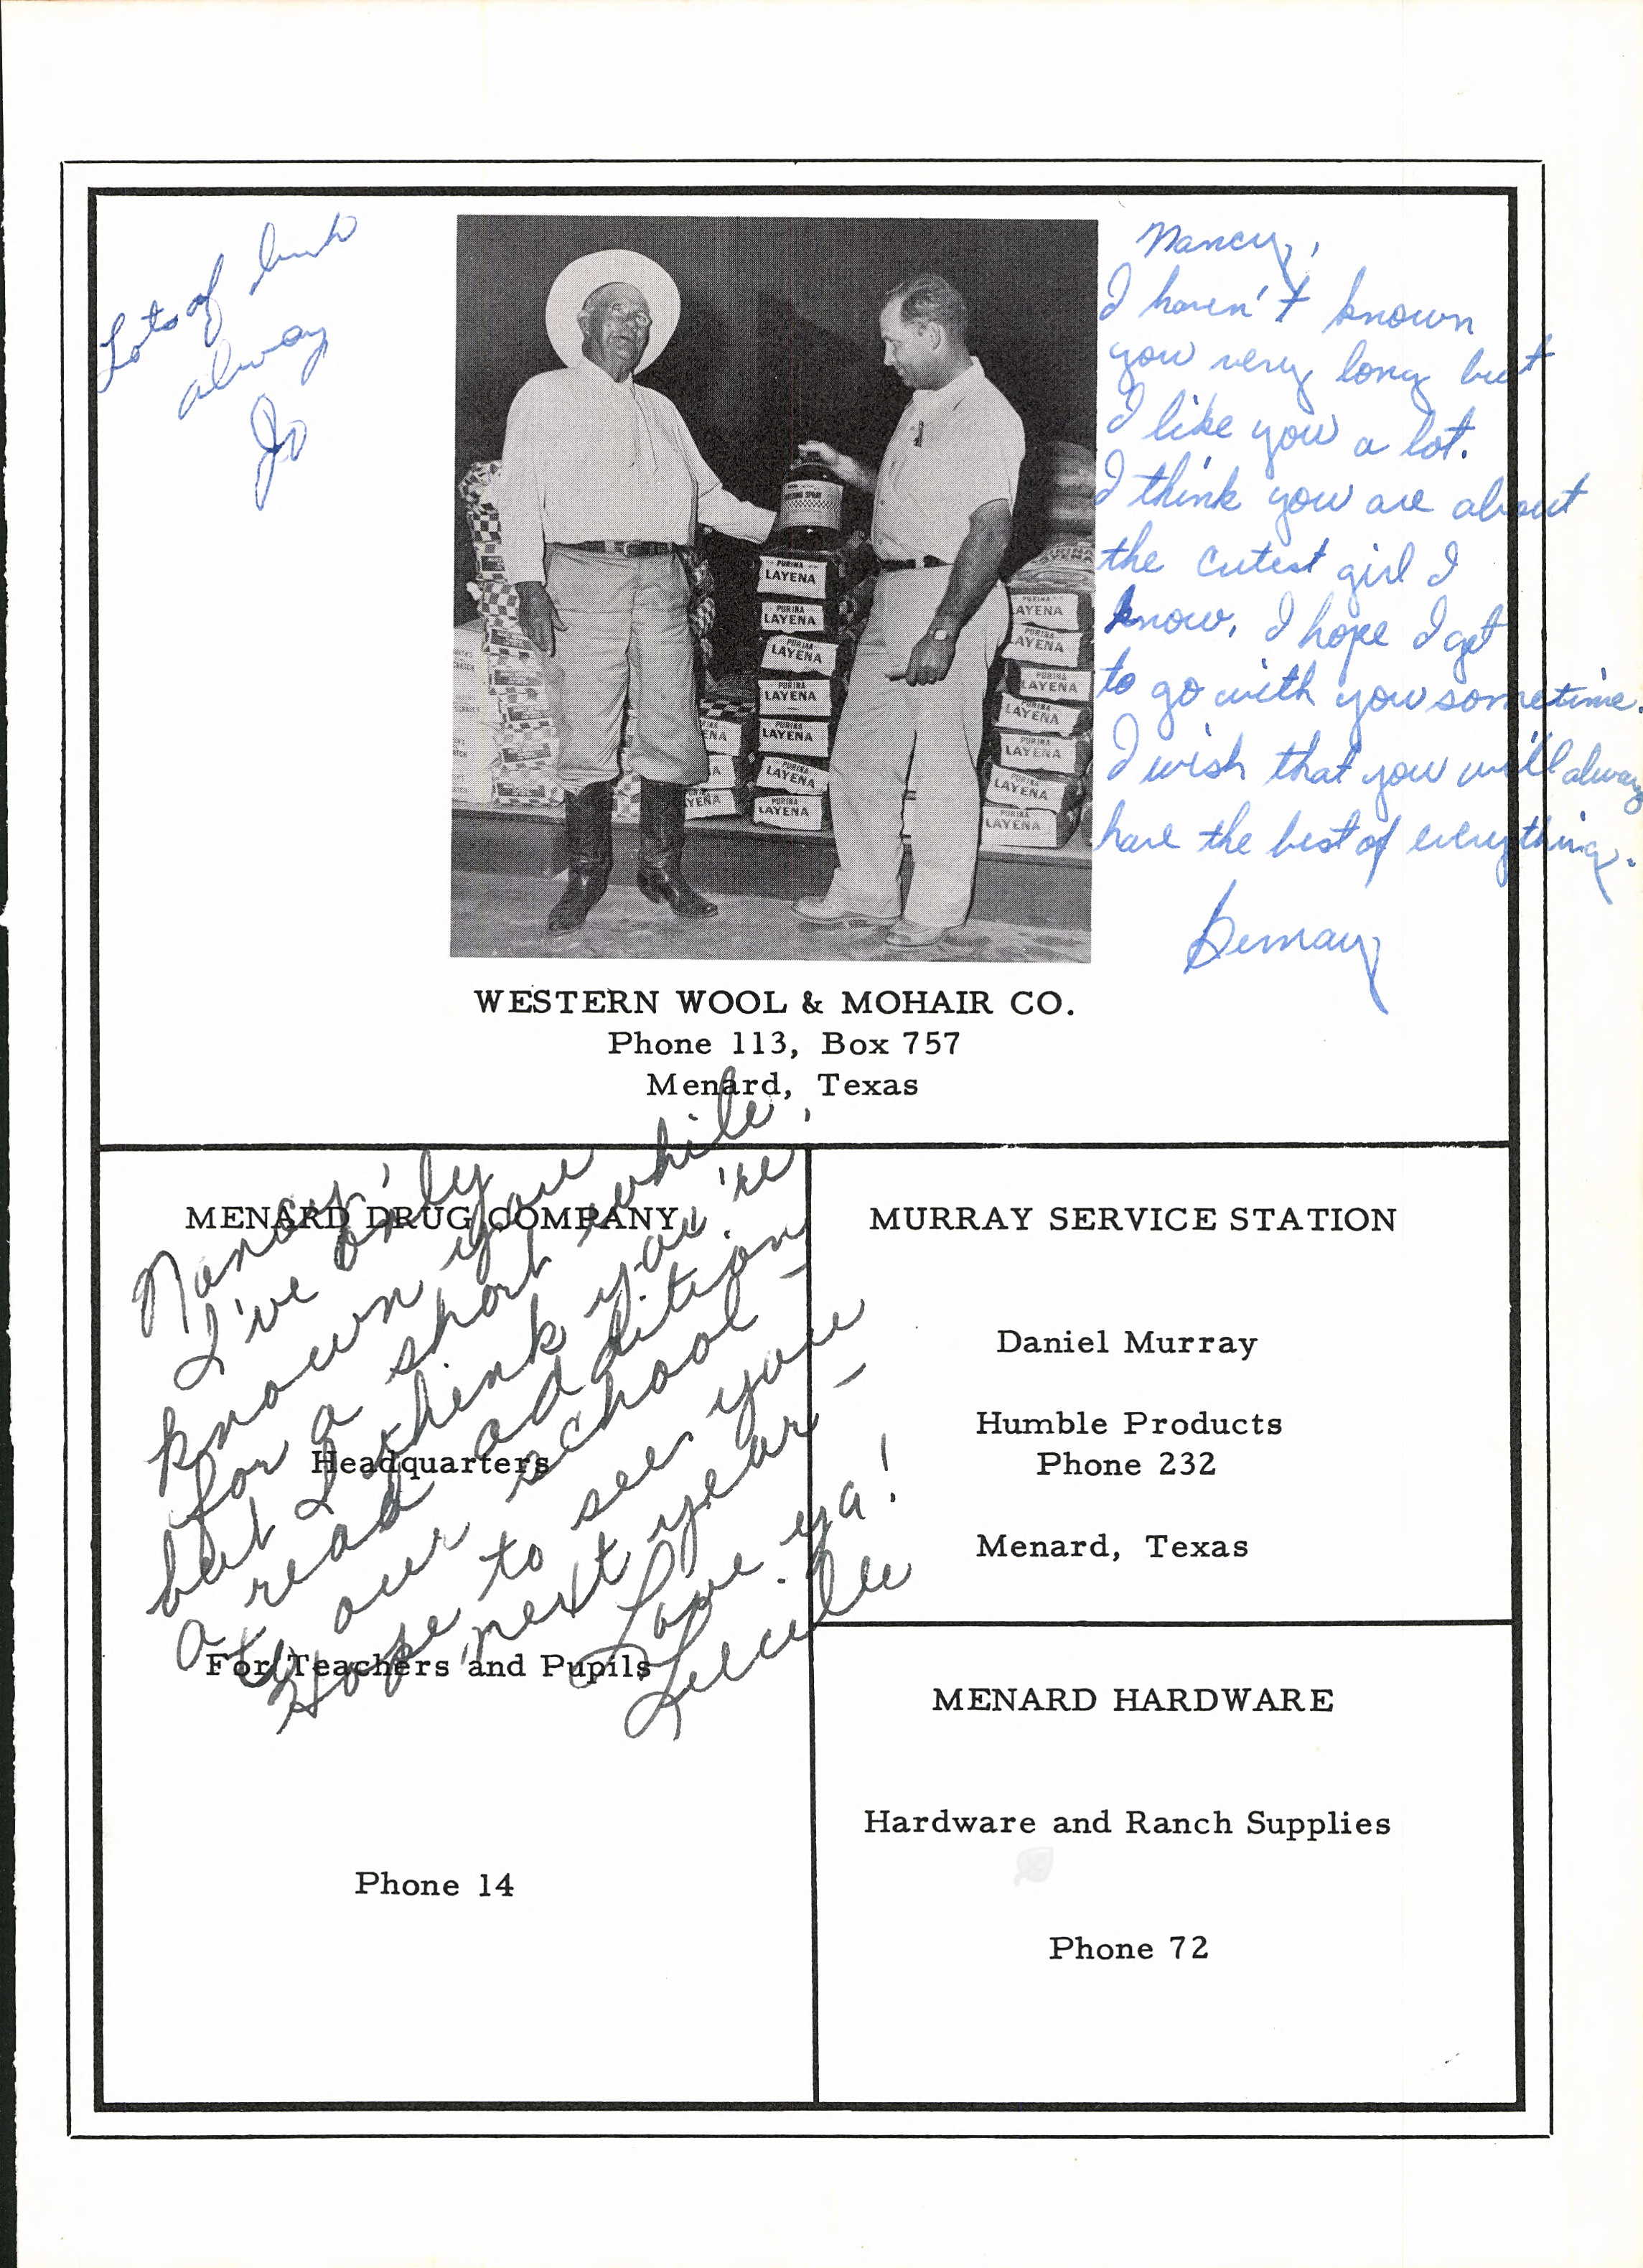 Lots of luck
alway
Jo
Nancy,
I haven't known
you very long but
I like you a lot.
I think you are about
the cutest girl I
know, I hope I get
to go with you sometime.
I wish that you will always
have the best of everything.
PURINA
LAYENA
PURINA
LAYENA
PURINA
LAYENA
PURINA
LAYENA
PURINA
LAYENA
PURINA
LAYENA
PURINA
LAYENA
WESTERN WOOL & MOHAIR CO.
Phone 113, Box 757
Menard, Texas
MENARD DRUG COMPANY
Headquarters
For Teachers and Pupils
Phone 14
Nancy,
I've only
known you
for a short while,
but I think you're
a real addition
to our school -
Hope to see you
next year -
Love ya!
Lucille
MURRAY SERVICE STATION
Daniel Murray
Humble Products
Phone 232
Menard, Texas
MENARD HARDWARE
Hardware and Ranch Supplies
Phone 72